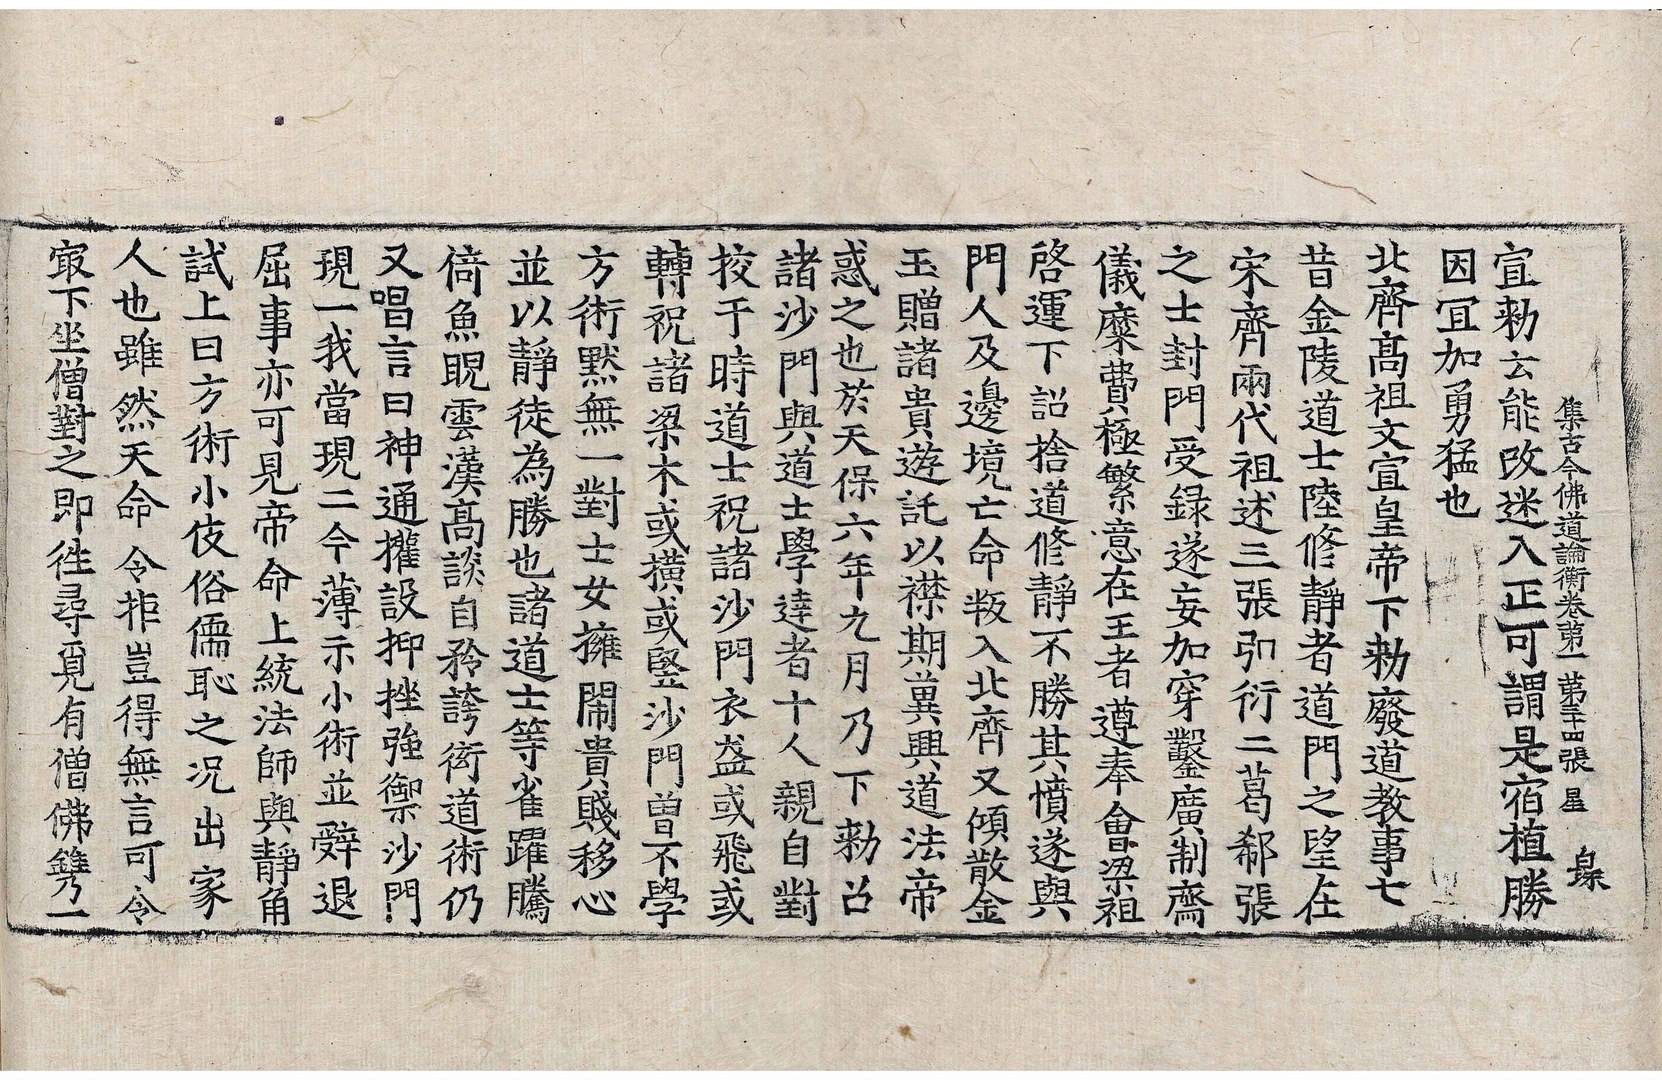 集古今佛道論衡卷第一 第三十四張 星
㮈
宜勑云能改迷入正可謂是宿植勝
因冝加勇猛也
北齊髙祖文宣皇帝下勑廢道教事七
昔金陵道士陸修靜者道門之望在
宋齊兩代祖述三張弘衍二葛郗張
之士封門受録遂妄加穿鑿廣制齋
儀糜費極繁意在王者遵奉會梁祖
啓運下詔捨道修靜不勝其憤遂與
門人及邊境亡命叛入北齊又傾散金
玉贈諸貴遊託以襟期兾興道法帝
惑之也於天保六年九月乃下勑召
諸沙門與道士學達者十人親自對
挍于時道士祝諸沙門衣盋或飛或
轉祝諸梁木或横或竪沙門曽不學
方術黙無一對士女擁閙貴賤移心
並以靜徒為勝也諸道士等雀躍騰
倚魚睨雲漢髙談自矜誇衒道術仍
又唱言曰神通攉設抑挫強禦沙門
現一我當現二今薄示小術並辤退
屈事亦可見帝命上統法師與靜角
試上曰方術小伎俗儒恥之况出家
人也雖然天命令拒豈得無言可令
㝡下坐僧對之即徃尋覓有僧佛雋一